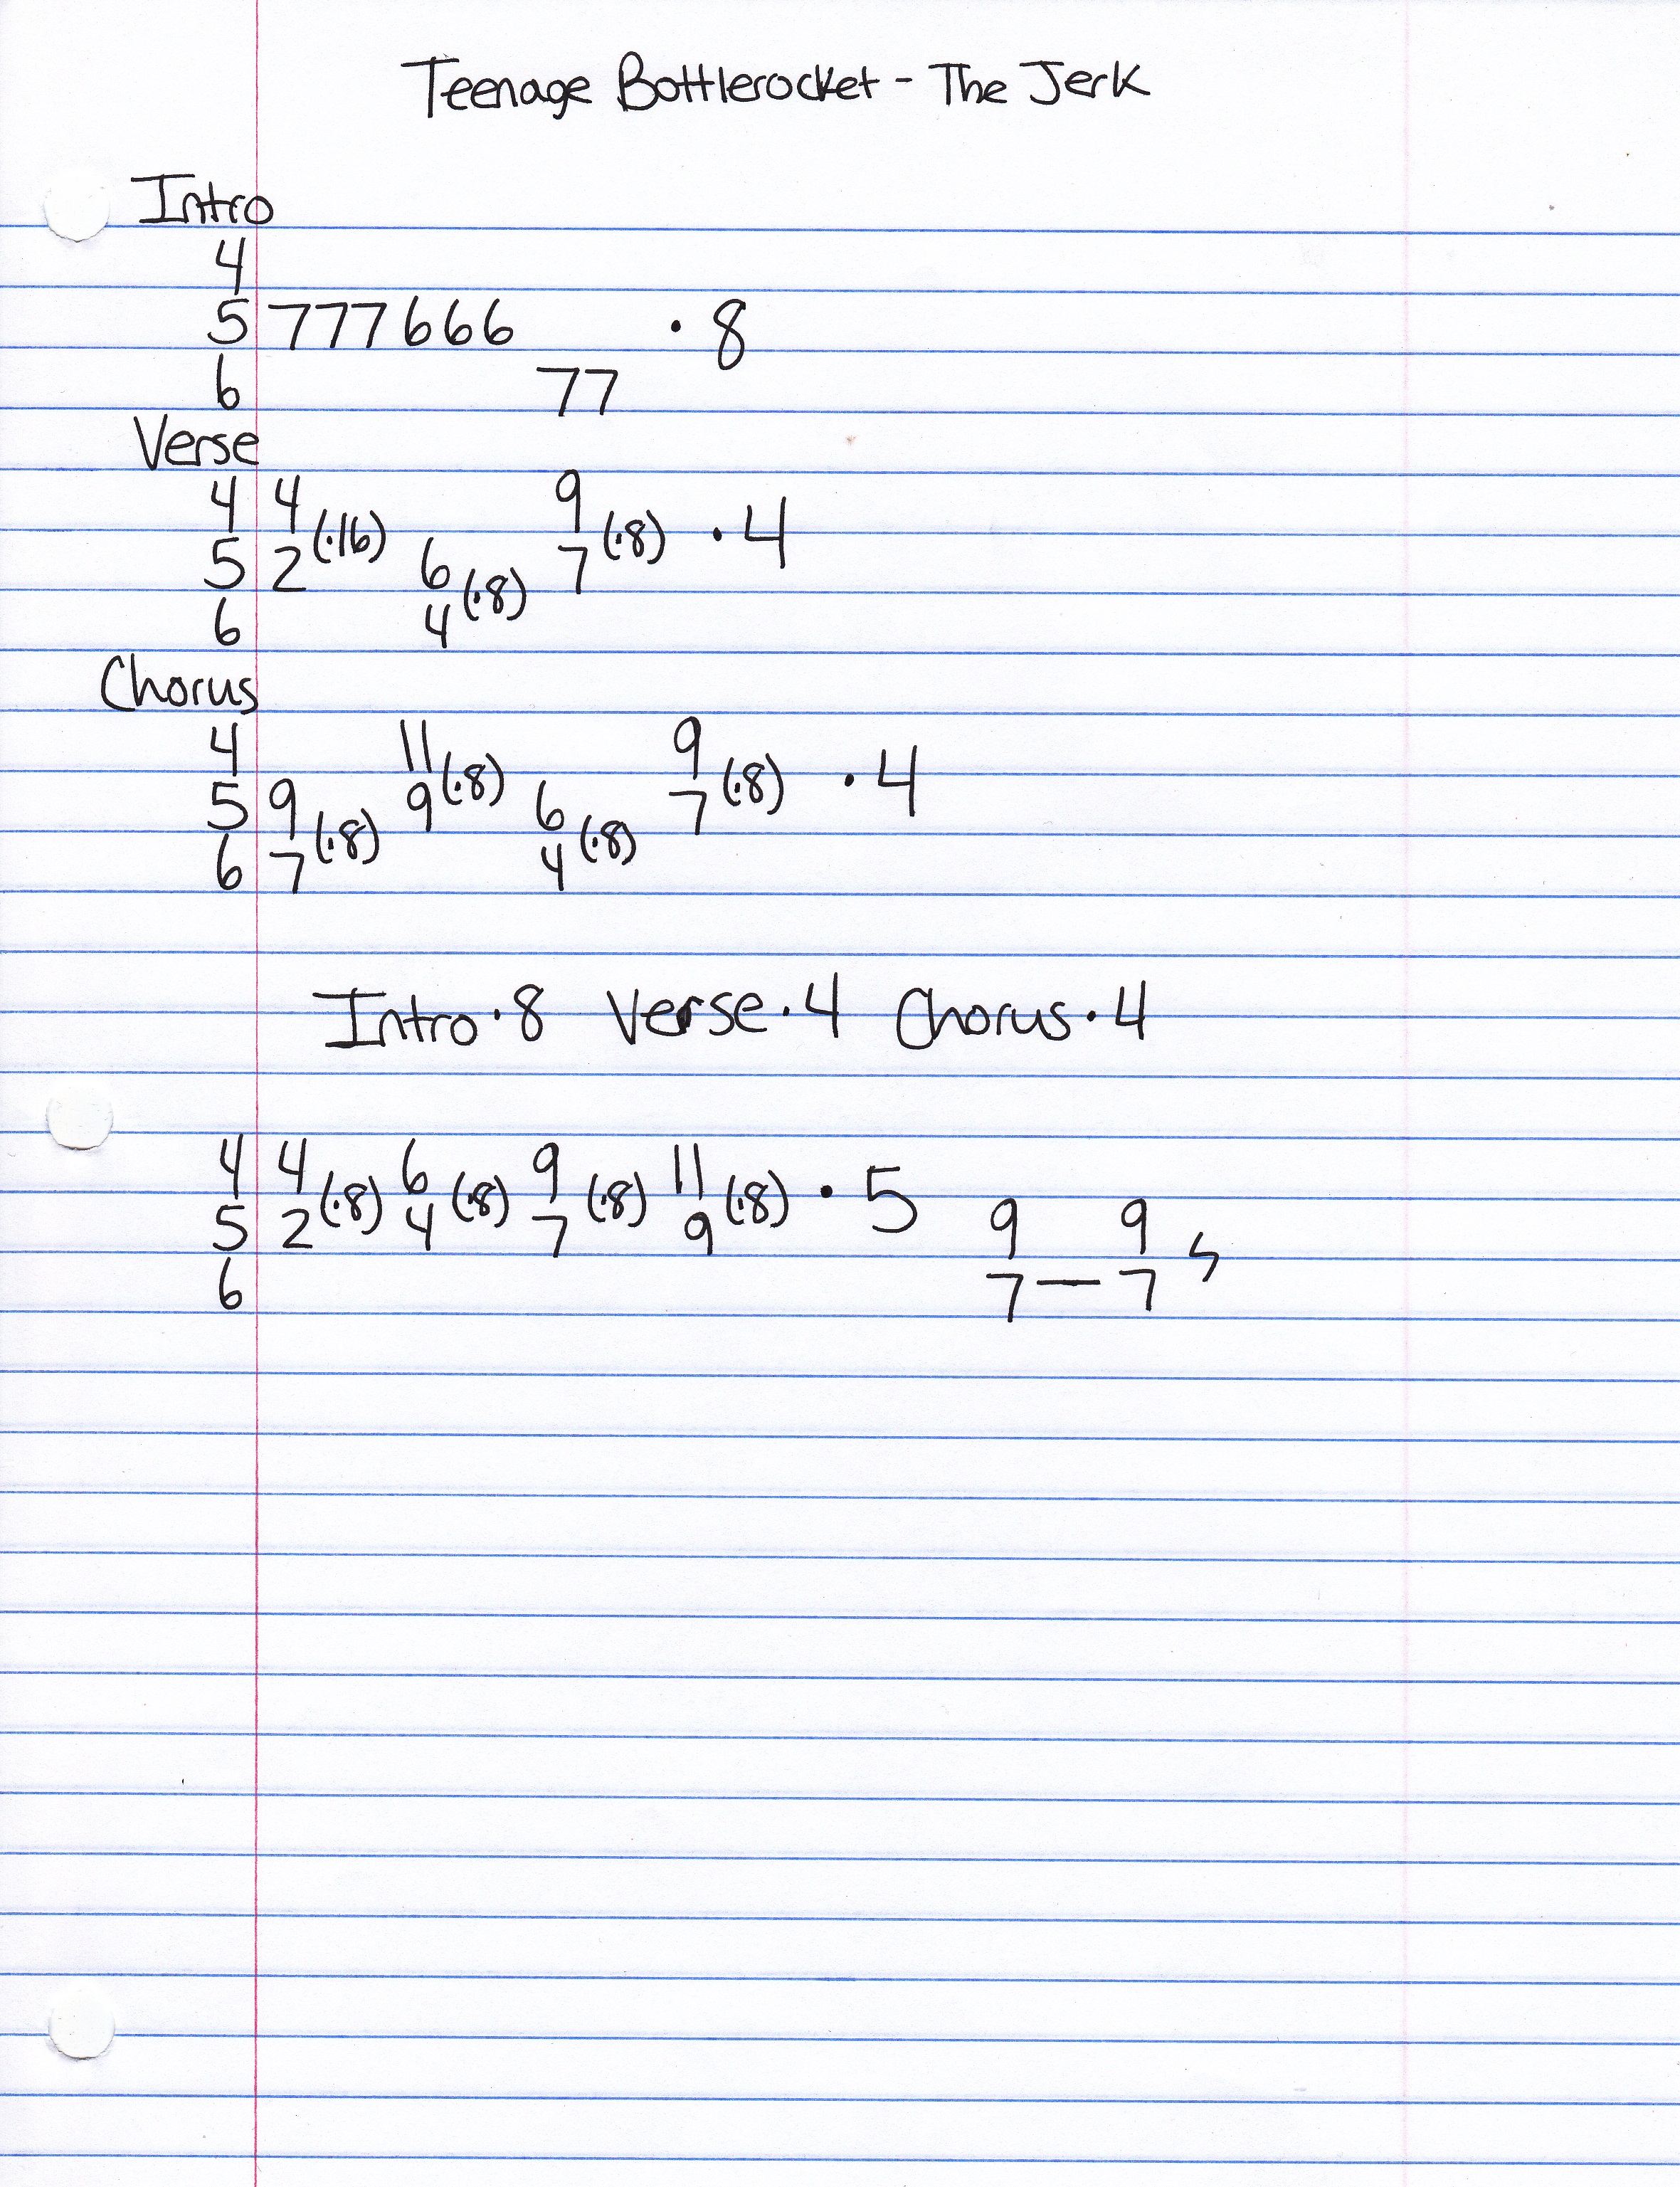 Teenage Bottlerocket - The Jerk
Intro
4
5 777666 · 8
6 77
Verse
4 4 9
(·16) (·8) · 4
5 2 6 7
(·8)
6 4
Chorus
4 11 9
(·8) (·8) · 4
5 9 9 6 7
(·8) (·8)
6 7 4
Intro · 8 Verse · 4 Chorus · 4
4 4 6 9 11
(·8) (·8) (·8) (·8) · 5
5 2 4 7 9 9 9
6 7 — 7